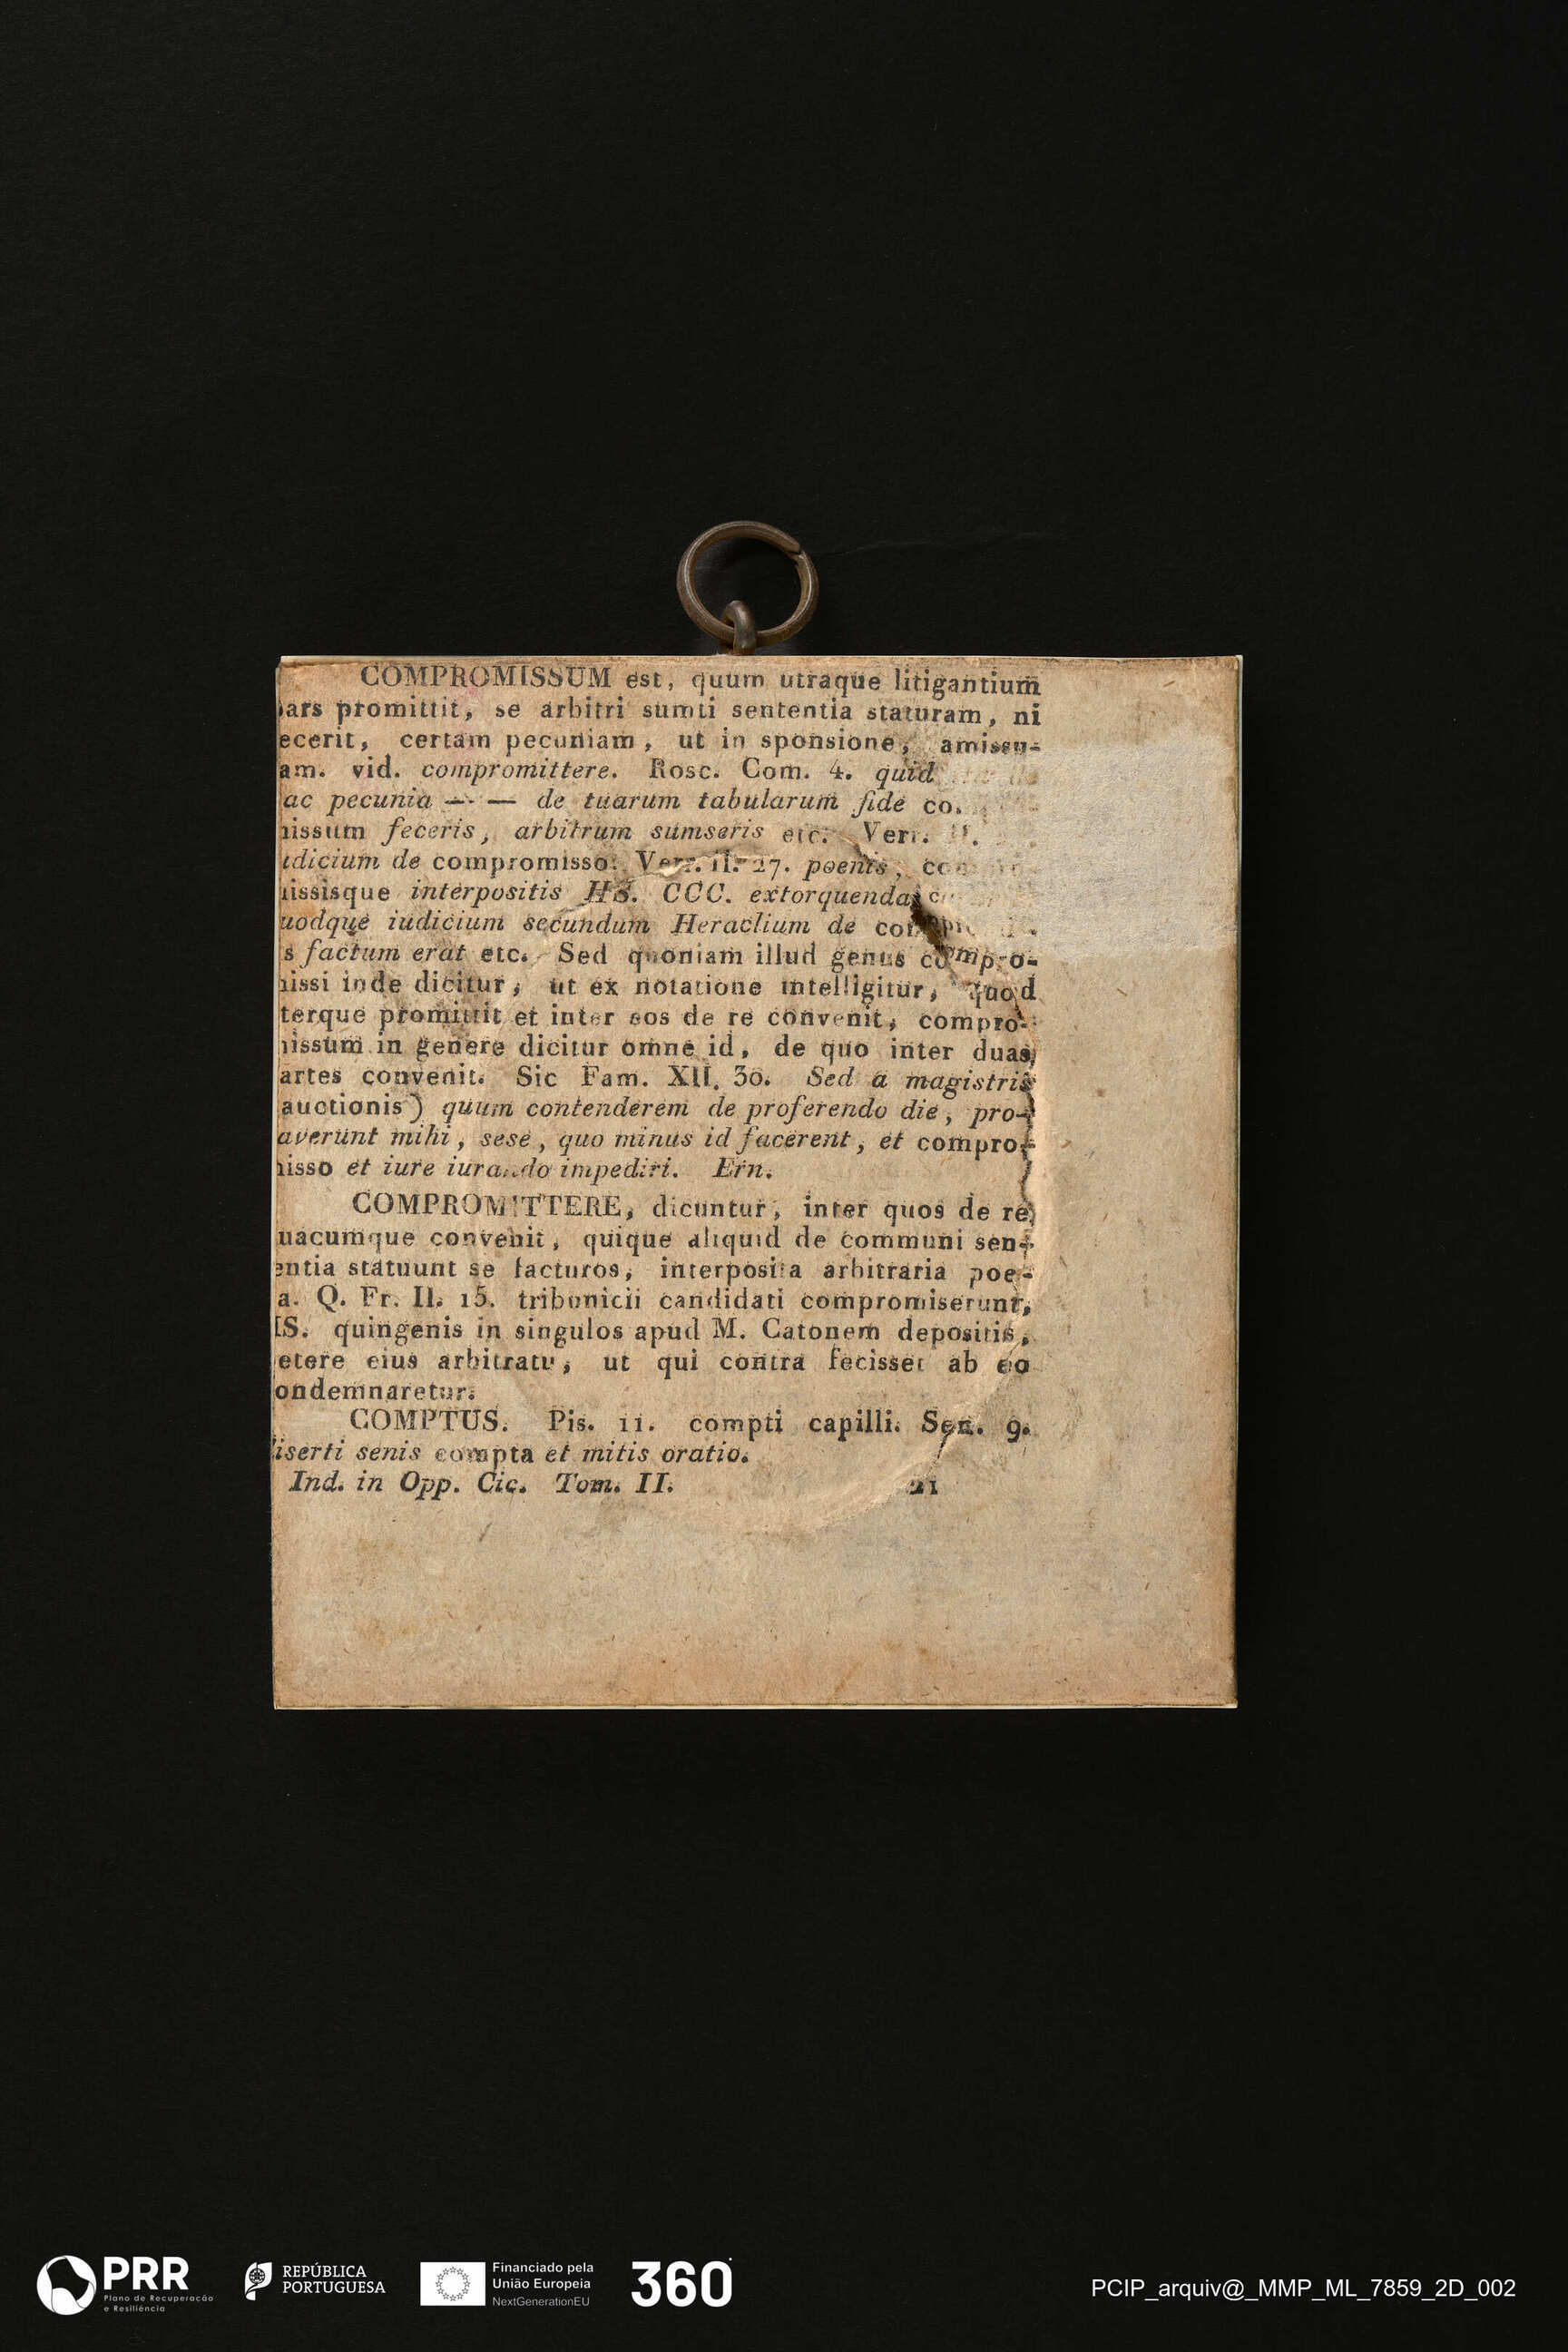 COMPROMISSUM est, quum utraque litigantium
ars promittit, se arbitri sumti sententia staturam, ni
ecerit, certam pecuniam, ut in sponsione, amissu-
am. vid. compromittere. Rosc. Com. 4. quid
ac pecunia — — de tuarum tabularum fide co.
nissum feceris, arbitrum sumseris etc. Verr.
idicium de compromisso. Verr. II. 27. poenis,
nissisque interpositis HS. CCC. extorquenda
uodque iudicium secundum Heraclium de
s factum erat etc. Sed quoniam illud genus compro-
nissi inde dicitur, ut ex notatione intelligitur, quod
terque promittit et inter eos de re convenit, compro-
nissum in genere dicitur omne id, de quo inter duas
artes convenit. Sic Fam. XII. 30. Sed a magistris
auctionis) quum contenderem de proferendo die, pro-
averunt mihi, sese, quo minus id facerent, et compro-
nisso et iure iurando impediri. Ern.
COMPROMITTERE, dicuntur, inter quos de re
uacumque convenit, quique aliquid de communi sen-
entia statuunt se facturos, interposita arbitraria poe-
a. Q. Fr. II. 15. tribunicii candidati compromiserunt,
IS. quingenis in singulos apud M. Catonem depositis,
etere eius arbitratu, ut qui contra fecisset ab eo
ondemnaretur.
COMPTUS. Pis. 11. compti capilli. Sen. 9.
iserti senis compta et mitis oratio.
Ind. in Opp. Cic. Tom. II. 21
PRR
Plano de Recuperação
e Resiliência
REPÚBLICA
PORTUGUESA
Financiado pela
União Europeia
NextGenerationEU
360°
PCIP_arquiv@_MMP_ML_7859_2D_002